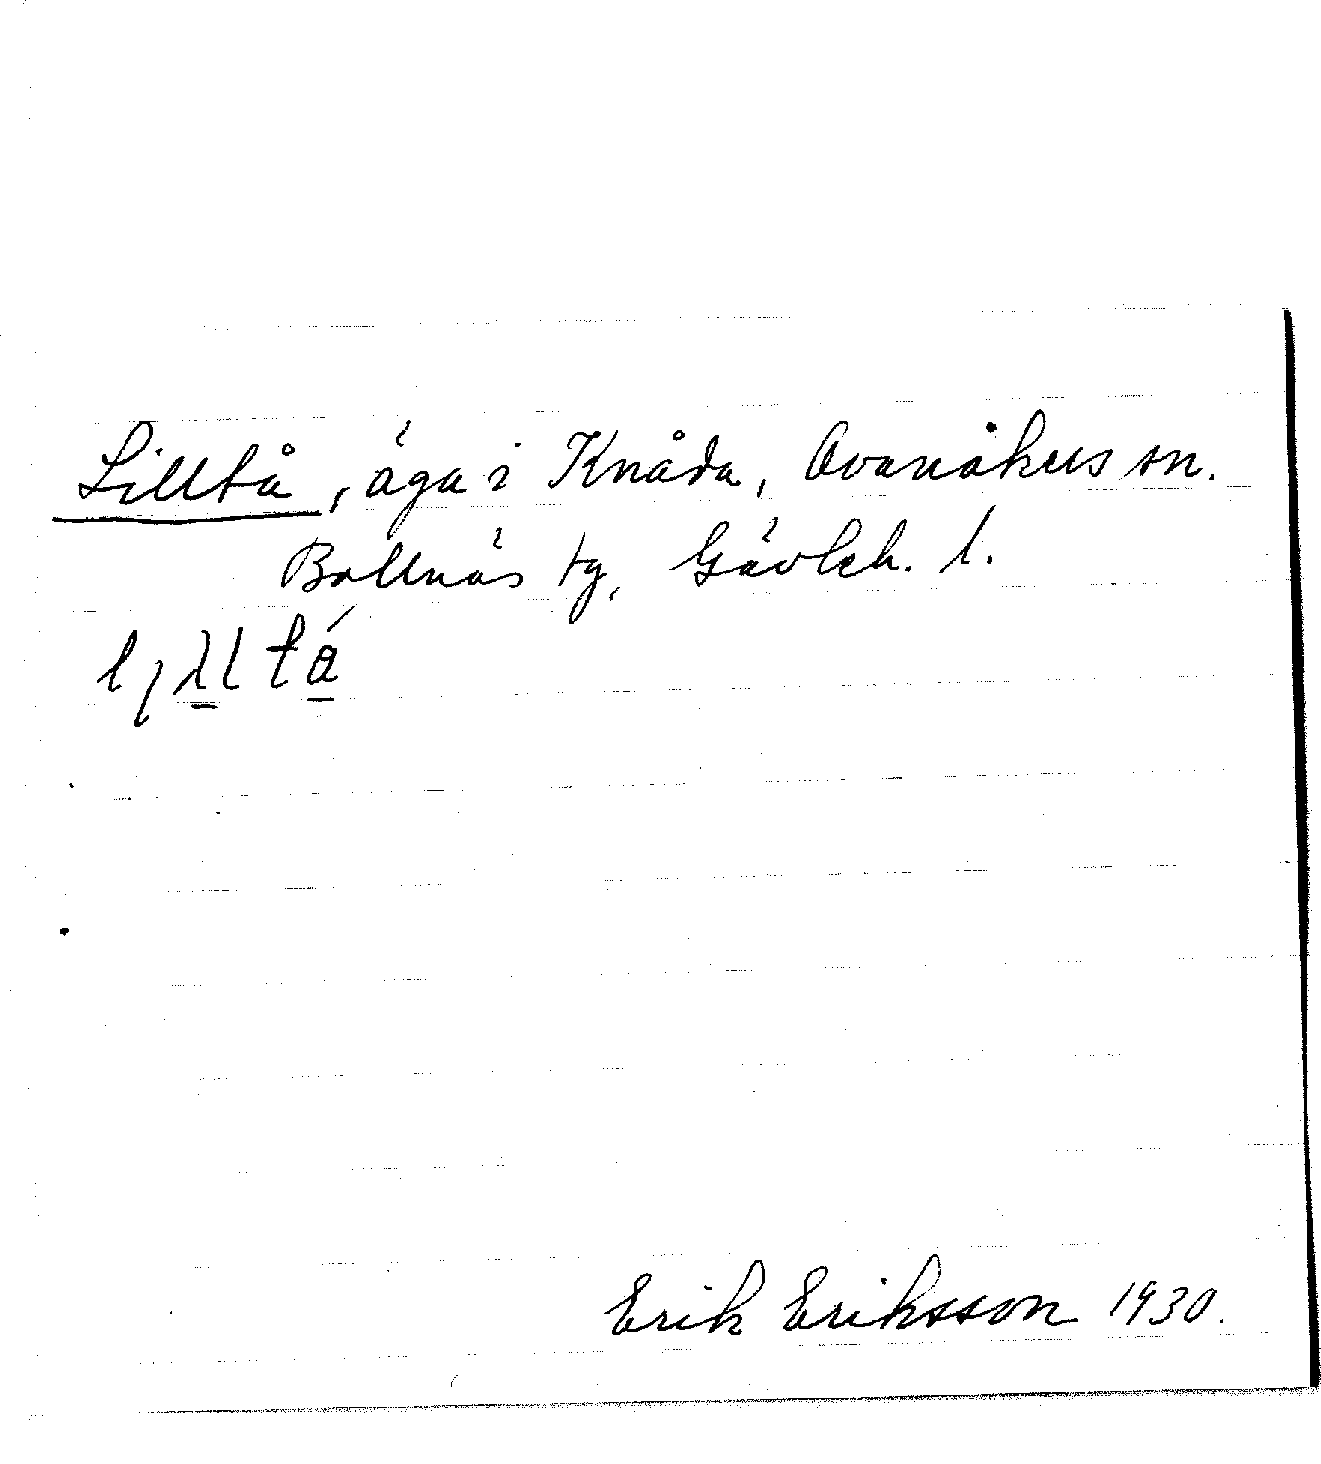 Lilltå, äga i Knåda, Ovanåkers sn.
Bollnäs tg, Gävleb. l.
Erik Eriksson 1930.